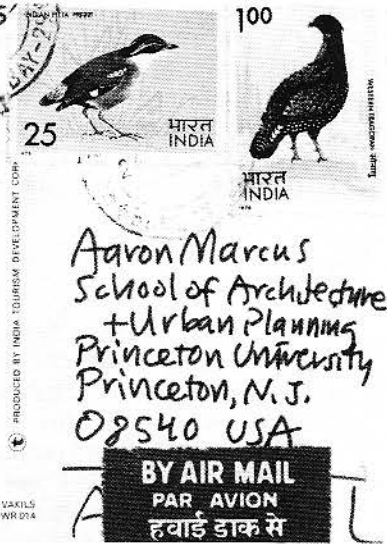 INDIAN PITTA
25
भारत
INDIA
1.00
WESTERN TRAGOPAN
भारत
INDIA
PRODUCED BY INDIA TOURISM DEVELOPMENT CORP
Aaron Marcus
School of Architecture
+ Urban Planning
Princeton University
Princeton, N.J.
08540 USA
BY AIR MAIL
PAR AVION
हवाई डाक से
A L
VAKILS
WR 014